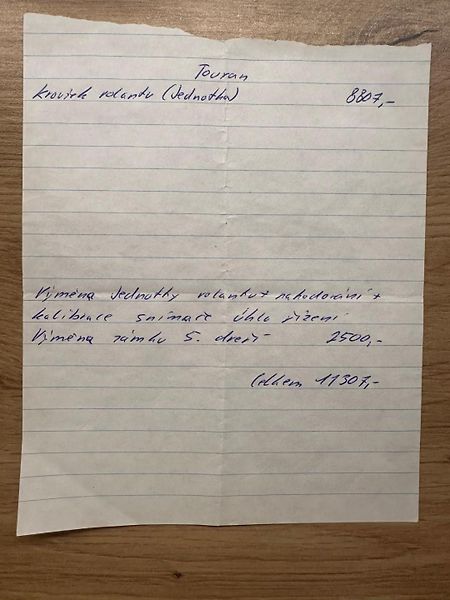 Touran
kroužek volantu (Jednotka) 8807,-
Výměna Jednotky volantu + nakodování +
kalibrace snímače úhlu řízení
Výměna zámku 5. dveří 2500,-
Celkem 11307,-